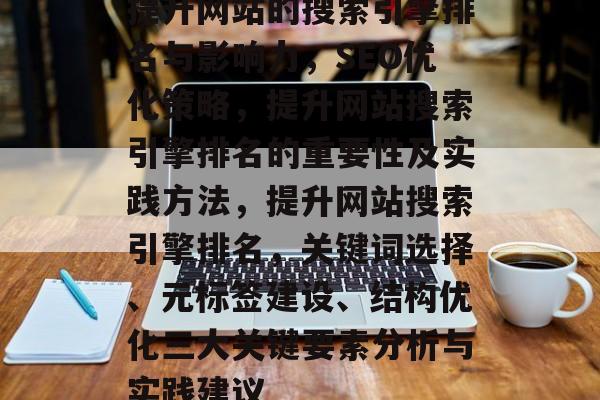 提升网站的搜索引擎排
名与影响力，SEO优
化策略，提升网站搜索
引擎排名的重要性及实
践方法，提升网站搜索
引擎排名，关键词选择
、元标签建设、结构优
化三大关键要素分析与
实践建议